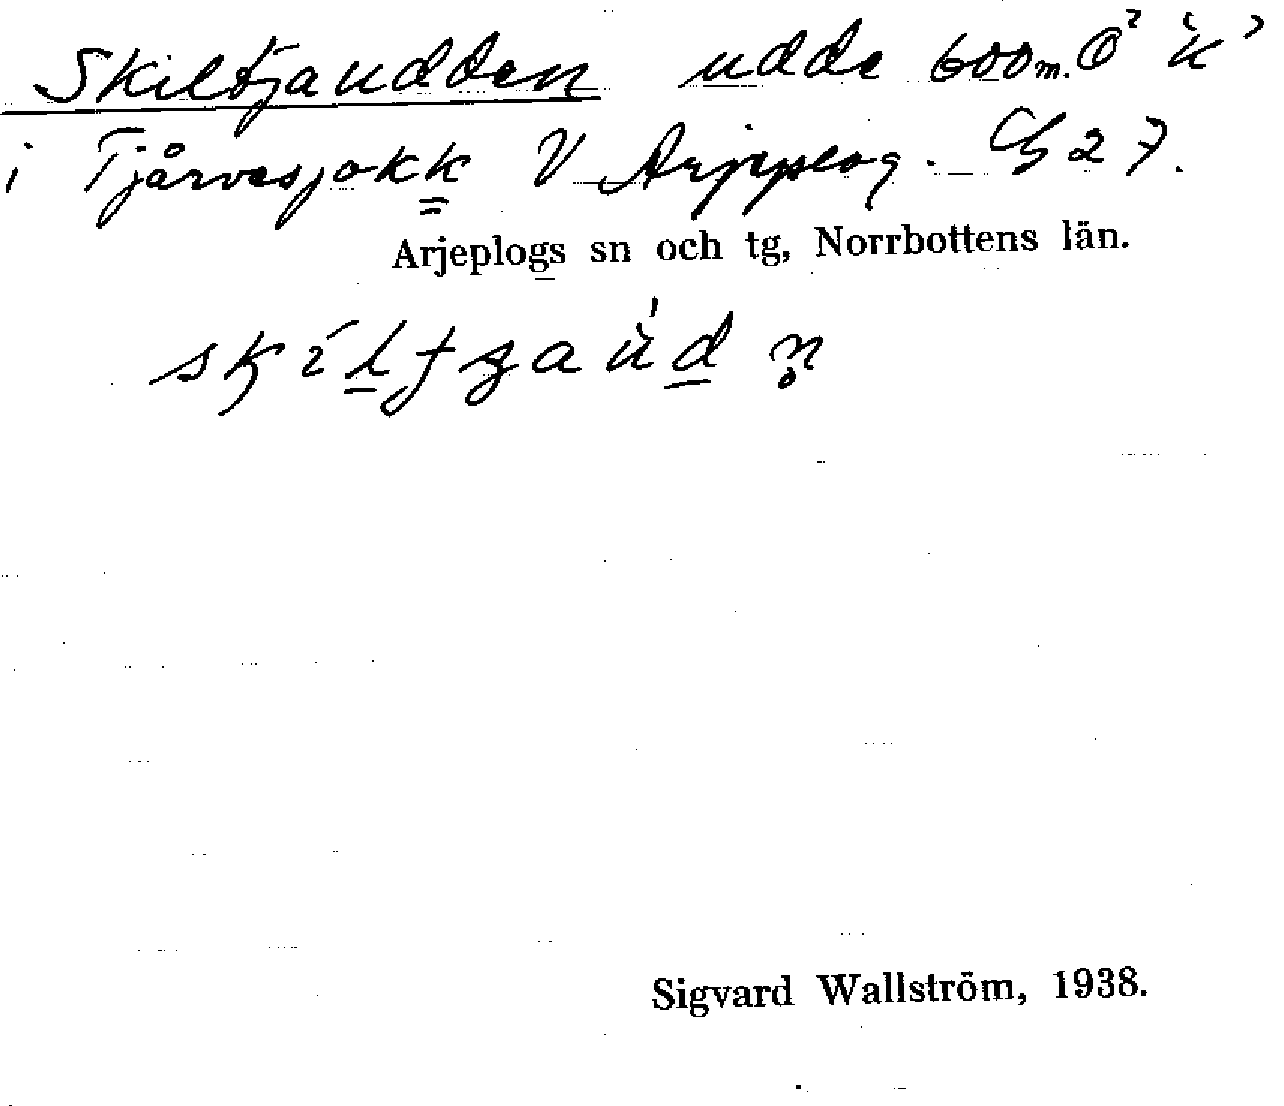 Skiltjaudden udde 600 m.
i Tjårvesjokk V Arjeplog. 27.
Arjeplogs sn och tg, Norrbottens län.
Sigvard Wallström, 1938.